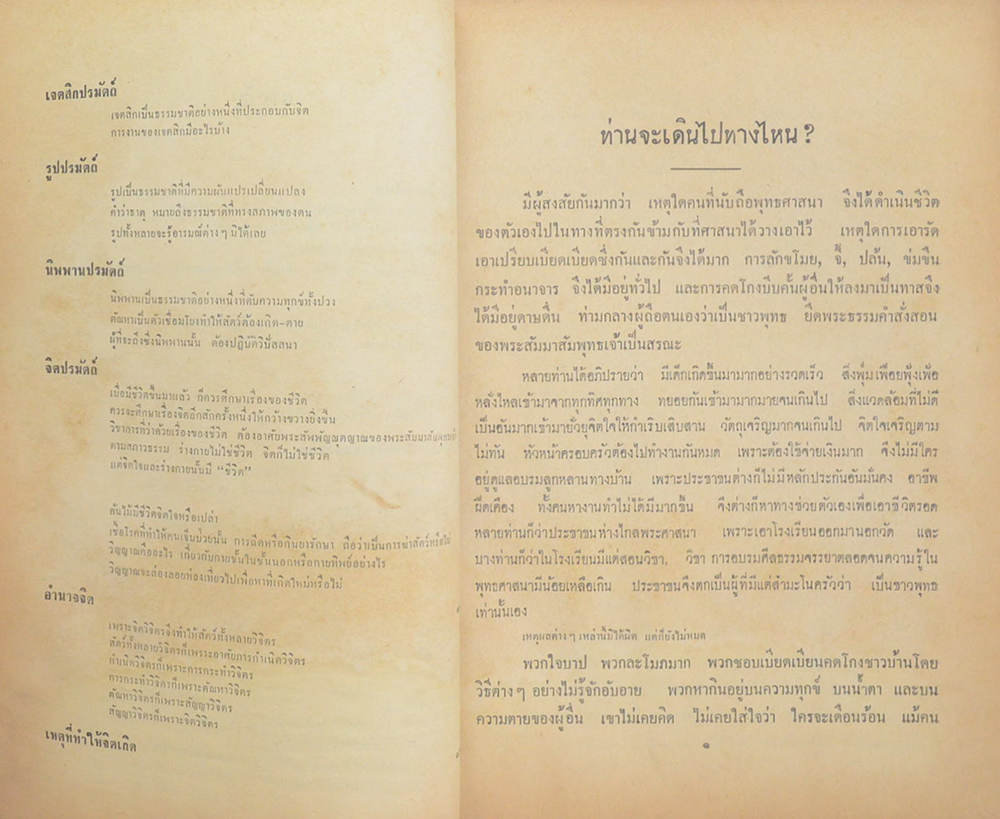 เจตสิกปรมัตถ์
เจตสิกเป็นธรรมชาติอย่างหนึ่งที่ประกอบกับจิต
การงานของเจตสิกมีอะไรบ้าง
รูปปรมัตถ์
รูปเป็นธรรมชาติที่มีความผันแปรเปลี่ยนแปลง
คำว่าธาตุ หมายถึงธรรมชาติที่ทรงสภาพของตน
รูปทั้งหลายจะรู้อารมณ์ต่าง ๆ มิได้เลย
นิพพานปรมัตถ์
นิพพานเป็นธรรมชาติอย่างหนึ่งที่ดับความทุกข์ทั้งปวง
ตัณหาเป็นตัวเชื่อมโยงทำให้สัตว์ต้องเกิด-ตาย
ผู้ที่จะถึงซึ่งนิพพานนั้น ต้องปฏิบัติวิปัสสนา
จิตปรมัตถ์
เมื่อมีชีวิตขึ้นมาแล้ว ก็ควรศึกษาเรื่องของชีวิต
ควรจะศึกษาเรื่องจิตอีกสักครั้งหนึ่งให้กว้างขวางยิ่งขึ้น
วิชาการที่ว่าด้วยเรื่องของชีวิต ต้องอาศัยพระสัพพัญญุตญาณของพระสัมมาสัมพุทธเจ้า
ตามสภาวธรรม ร่างกายไม่ใช่ชีวิต จิตก็ไม่ใช่ชีวิต
แต่จิตใจและร่างกายนั้นมี “ชีวิต”
ต้นไม้มีชีวิตจิตใจหรือเปล่า
เชื้อโรคที่ทำให้คนเจ็บป่วยนั้น การฉีดหรือกินยารักษา ถือว่าเป็นการฆ่าสัตว์หรือไม่
วิญญาณคืออะไร เกี่ยวกับกายชั้นในชั้นนอกหรือกายทิพย์อย่างไร
วิญญาณจะล่องลอยท่องเที่ยวไปเพื่อหาที่เกิดใหม่หรือไม่
อำนาจจิต
เพราะจิตวิจิตรจึงทำให้สัตว์ทั้งหลายวิจิตร
สัตว์ทั้งหลายวิจิตรก็เพราะอาศัยการกำเนิดวิจิตร
กำเนิดวิจิตรก็เพราะการกระทำวิจิตร
การกระทำวิจิตรก็เพราะตัณหาวิจิตร
ตัณหาวิจิตรก็เพราะสัญญาวิจิตร
สัญญาวิจิตรก็เพราะจิตวิจิตร
เหตุที่ทำให้จิตเกิด
ท่านจะเดินไปทางไหน ?
มีผู้สงสัยกันมากว่า เหตุใดคนที่นับถือพุทธศาสนา จึงได้ดำเนินชีวิต
ของตัวเองไปในทางที่ตรงกันข้ามกับที่ศาสนาได้วางเอาไว้ เหตุใดการเอารัด
เอาเปรียบเบียดเบียดซึ่งกันและกันจึงได้มาก การลักขโมย, จี้, ปล้น, ข่มขืน
กระทำอนาจาร จึงได้มีอยู่ทั่วไป และการคดโกงบีบคั้นผู้อื่นให้ลงมาเป็นทาสจึง
ได้มีอยู่ดาษดื่น ท่ามกลางผู้ถือตนเองว่าเป็นชาวพุทธ ยึดพระธรรมคำสั่งสอน
ของพระสัมมาสัมพุทธเจ้าเป็นสรณะ
หลายท่านได้อภิปรายว่า มีเด็กเกิดขึ้นมามากอย่างรวดเร็ว สิ่งฟุ่มเฟือยฟุ้งเฟ้อ
หลั่งไหลเข้ามาจากทุกทิศทุกทาง ทยอยกันเข้ามามากมายจนเกินไป สิ่งแวดล้อมที่ไม่ดี
เป็นอันมากเข้ามายั่วยุจิตใจให้กำเริบเสิบสาน วัตถุเจริญมากจนเกินไป จิตใจเจริญตาม
ไม่ทัน หัวหน้าครอบครัวต้องไปทำงานกันหมด เพราะต้องใช้จ่ายเงินมาก จึงไม่มีใคร
อยู่ดูแลอบรมลูกหลานทางบ้าน เพราะประชาชนต่างก็ไม่มีหลักประกันอันมั่นคง อาชีพ
ฝืดเคือง ทั้งคนหางานทำไม่ได้มีมากขึ้น จึงต่างก็หาทางช่วยตัวเองเพื่อเอาชีวิตรอด
หลายท่านก็ว่าประชาชนห่างไกลพระศาสนา เพราะเอาโรงเรียนออกมานอกวัด และ
บางท่านก็ว่าในโรงเรียนมีแต่สอนวิชา, วิชา การอบรมศีลธรรมจรรยาตลอดจนความรู้ใน
พุทธศาสนามีน้อยเหลือเกิน ประชาชนจึงตกเป็นผู้ที่มีแต่สำมะโนครัวว่า เป็นชาวพุทธ
เท่านั้นเอง
เหตุผลต่าง ๆ เหล่านี้มิได้ผิด แต่ก็ยังไม่หมด
พวกใจบาป พวกละโมภมาก พวกชอบเบียดเบียนคดโกงชาวบ้านโดย
วิธีต่าง ๆ อย่างไม่รู้จักอับอาย พวกหากินอยู่บนความทุกข์ บนน้ำตา และบน
ความตายของผู้อื่น เขาไม่เคยคิด ไม่เคยใส่ใจว่า ใครจะเดือนร้อน แม้คน
๑